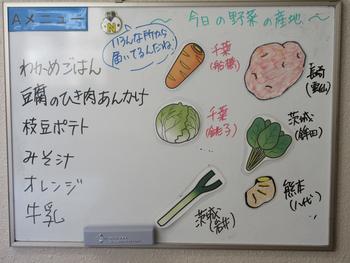 Aメニュー
わかめごはん
豆腐のひき肉あんかけ
枝豆ポテト
みそ汁
オレンジ
牛乳
〜今日の野菜の産地〜
いろんな所から
届いてるんだね!
千葉
(船橋)
長崎
(雲仙)
千葉
(銚子)
茨城
(鉾田)
茨城
(岩井)
熊本
(八代)